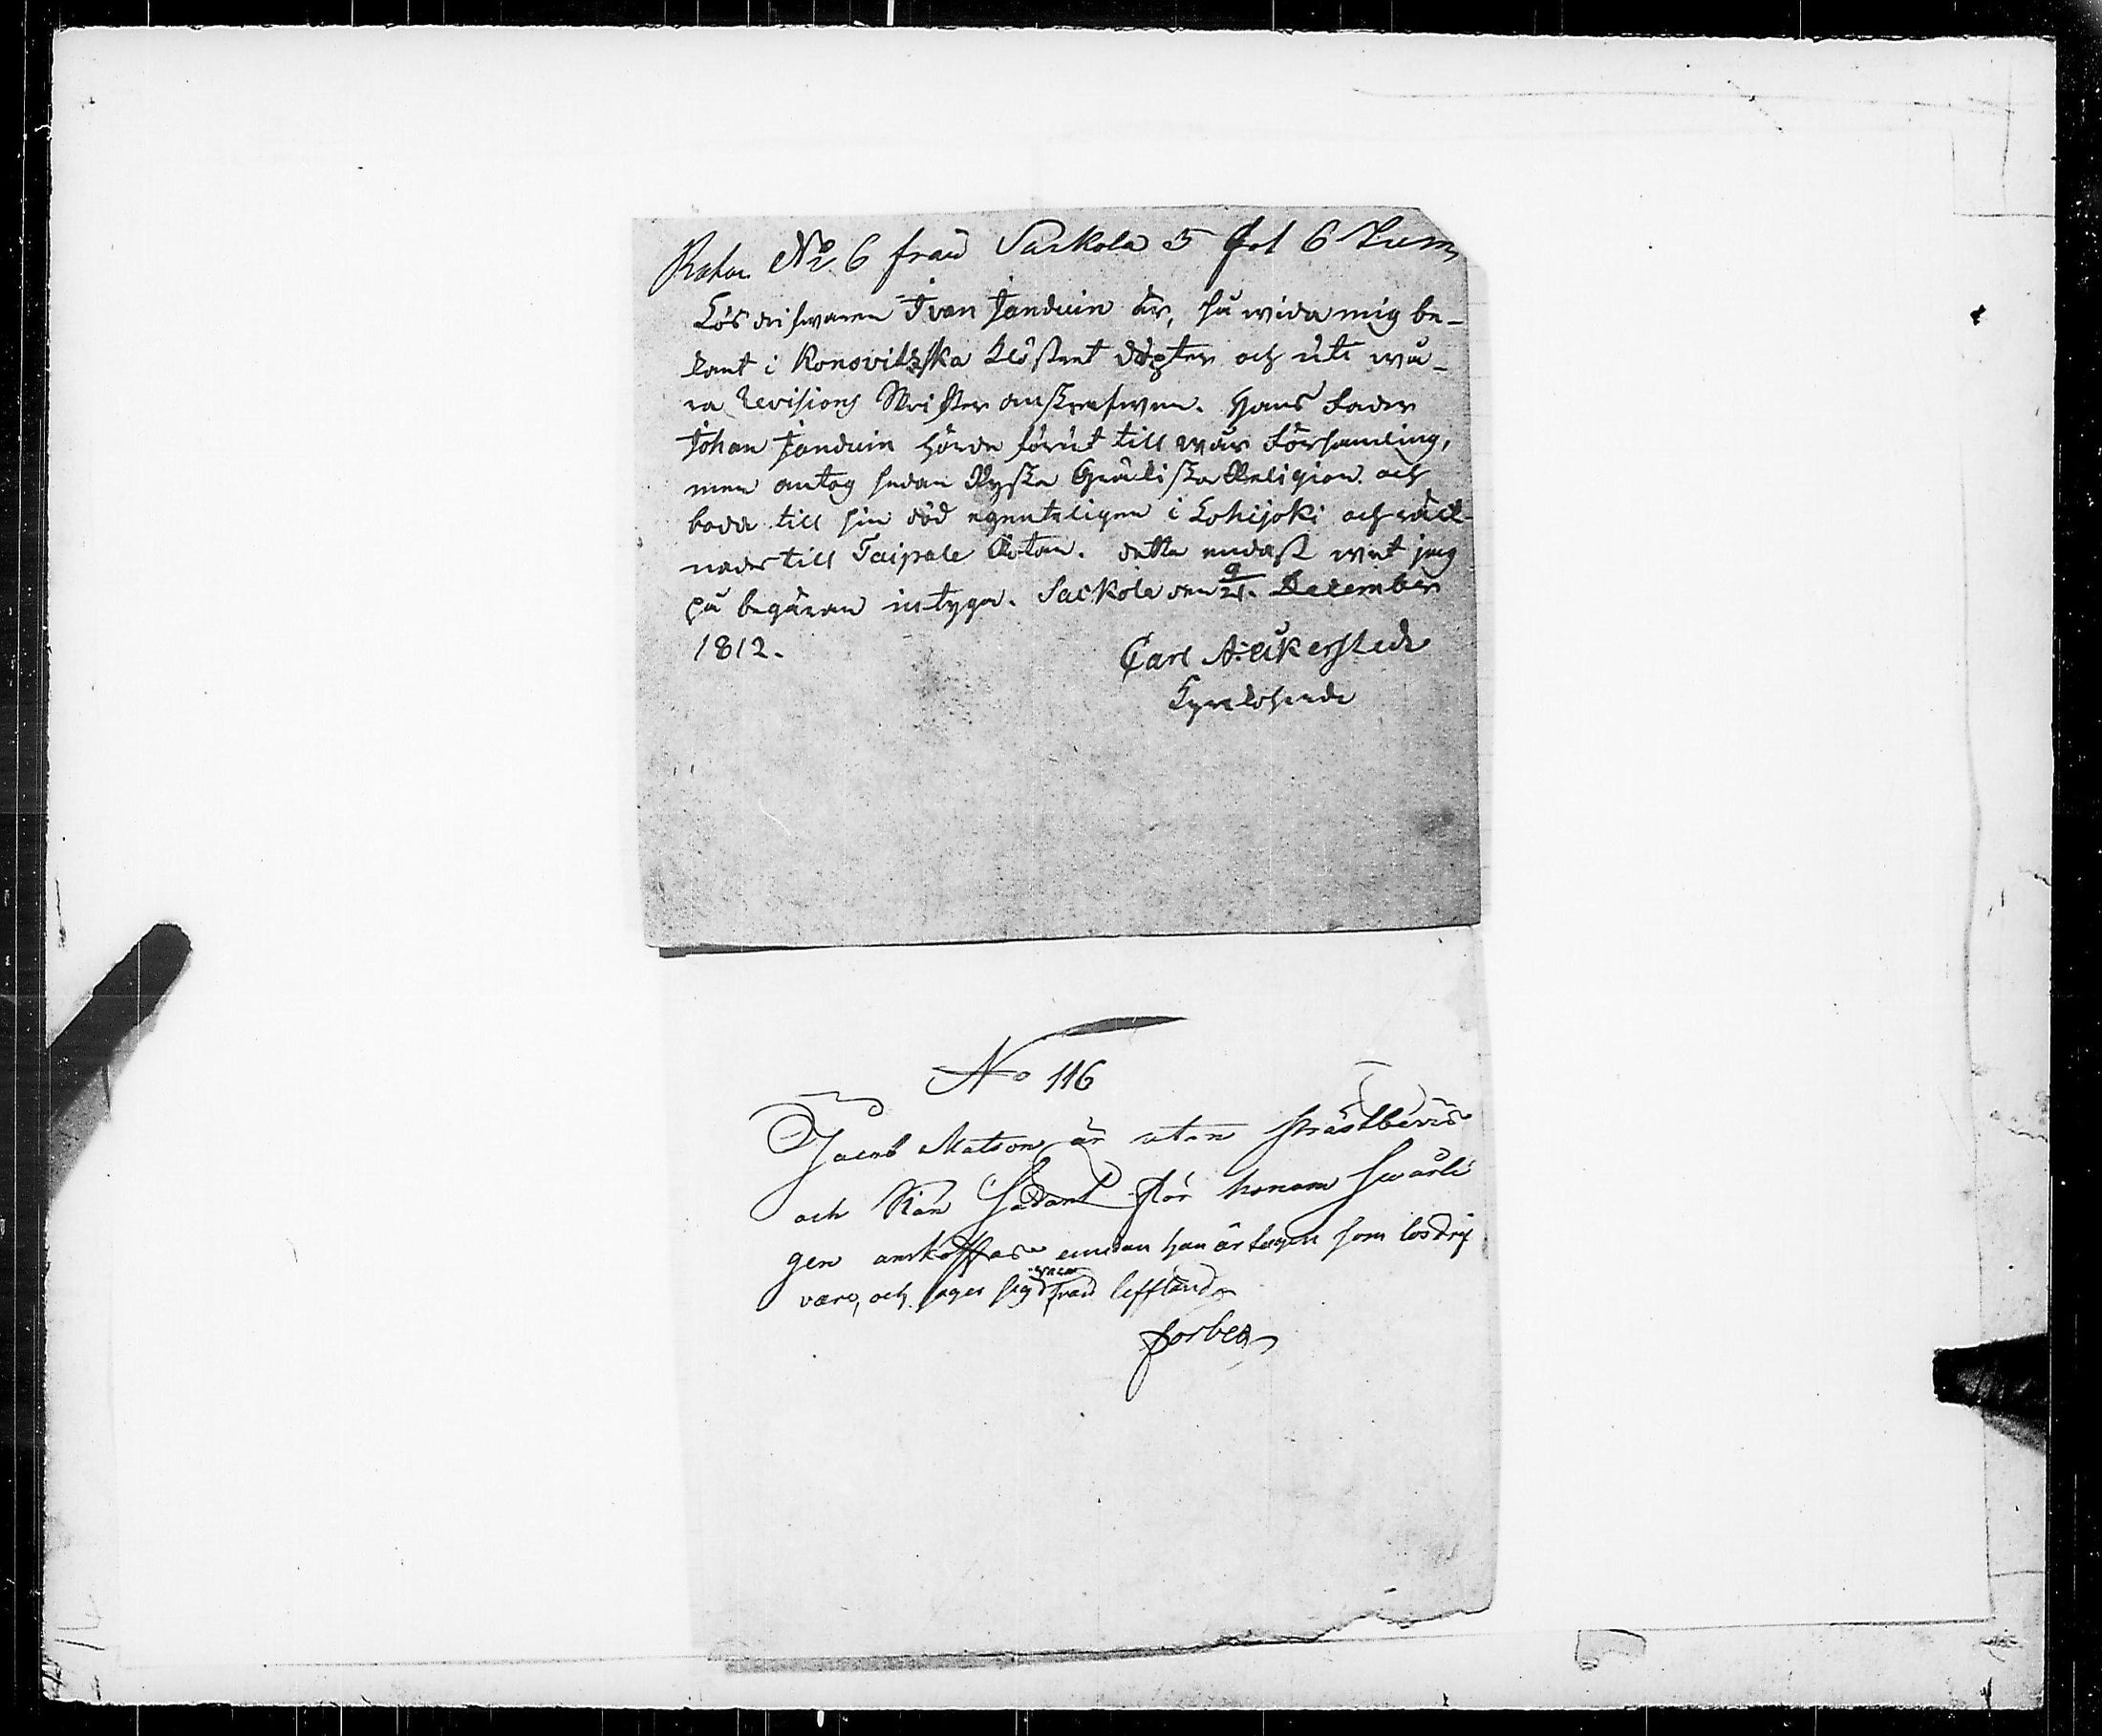 No 6 från Sackola 5 fot 6 tum
Lösdrifwaren Ivan Janduin är, så wida mig be-
kant i Konovitzska Klöstret döpter och uti wå-
ra Revisions Skrifter anskrefwen. Hans Fader
Johan Janduin hörde förut till wår Församling,
men antog sedan Ryska Grækiska Religion och
bodde till sin död egenteligen i Lohijoki och räck-
nades till Taipale Rotan. Detta endast wet jag
på begäran intyga. Sackola den 9/21. December
1812.
Carl A: Åkerstedt
Kyrckoherde
No 116
Jacob Matson är utan prästbevis
och kan sådant för honom swårli
gen anskaffas emedan han är tagen som lösdrif
vare, och säger sig vara från Liffland
Forbes